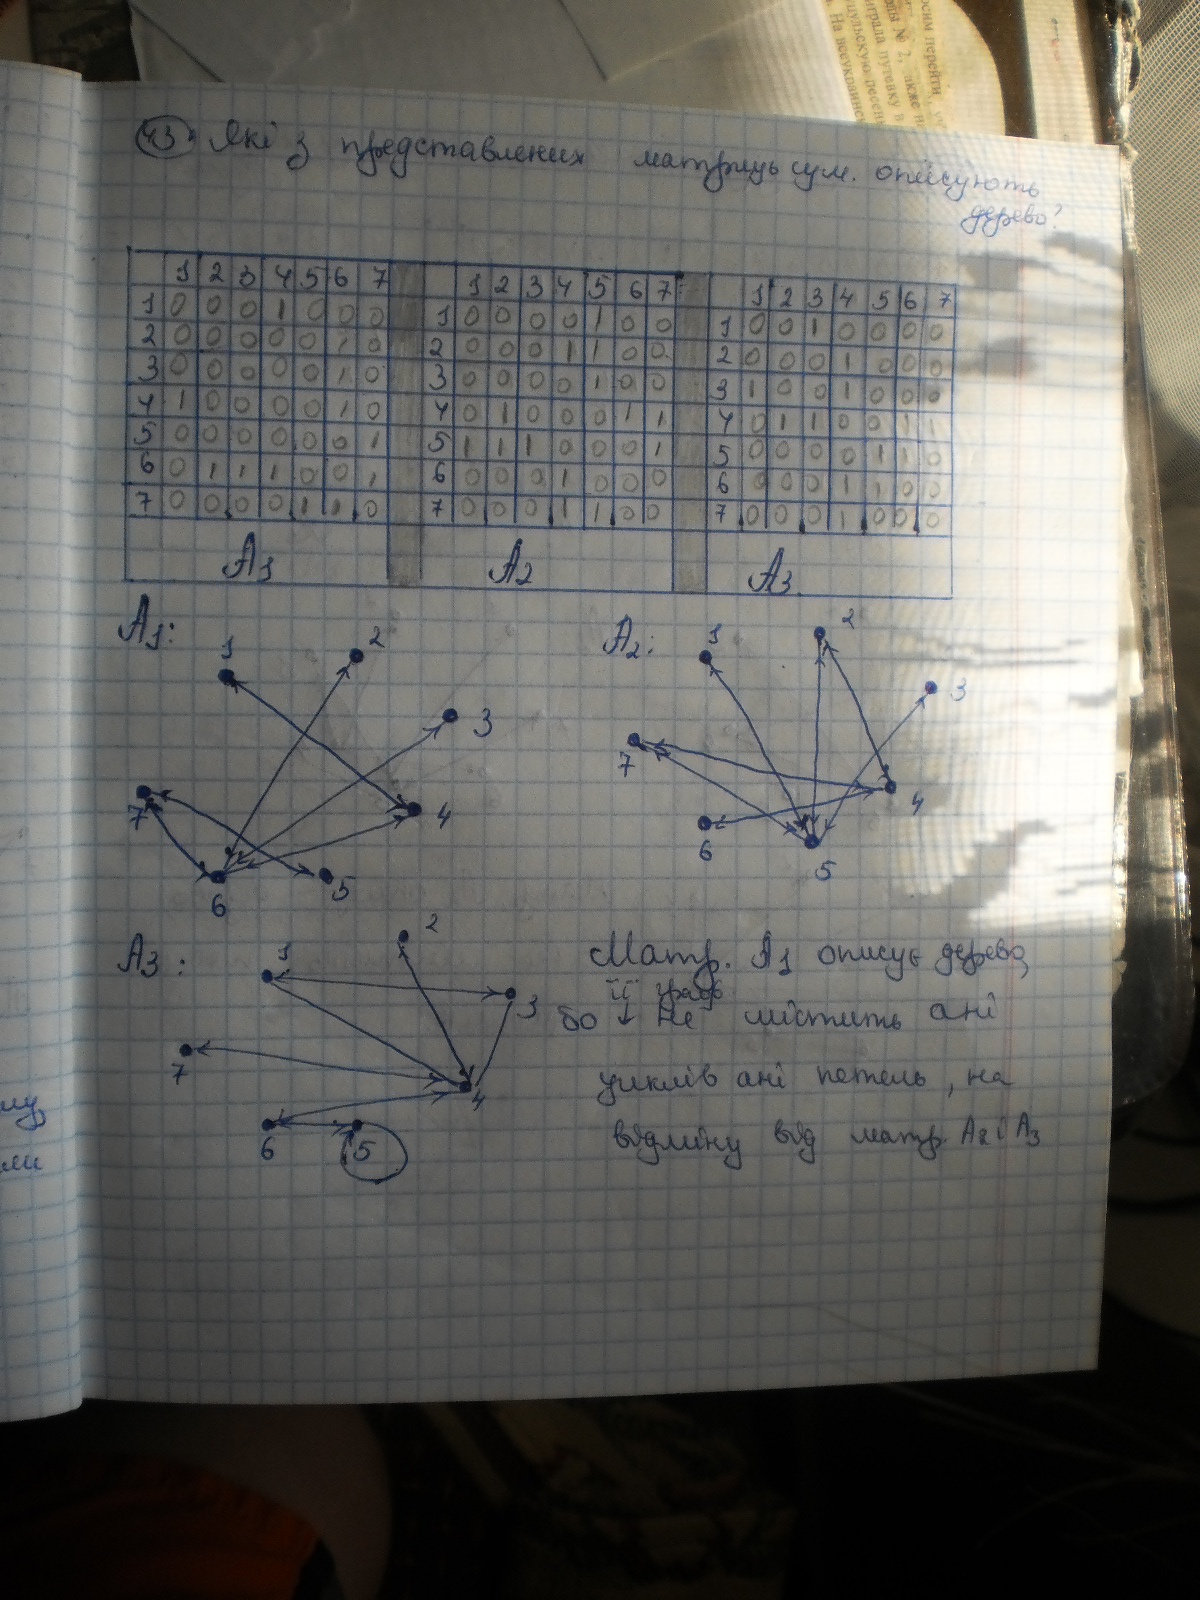 43. Які з представлених матриць сум. описують
дерево?
1 2 3 4 5 6 7
1 0 0 0 1 0 0 0
2 0 0 0 0 0 1 0
3 0 0 0 0 0 1 0
4 1 0 0 0 0 1 0
5 0 0 0 0 0 0 1
6 0 1 1 1 0 0 1
7 0 0 0 0 1 1 0
A1
1 2 3 4 5 6 7
1 0 0 0 0 1 0 0
2 0 0 0 1 1 0 0
3 0 0 0 0 1 0 0
4 0 1 0 0 0 1 1
5 1 1 1 0 0 0 1
6 0 0 0 1 0 0 0
7 0 0 0 1 1 0 0
A2
1 2 3 4 5 6 7
1 0 0 1 0 0 0 0
2 0 0 0 1 0 0 0
3 1 0 0 1 0 0 0
4 0 1 1 0 0 1 1
5 0 0 0 0 1 1 0
6 0 0 0 1 1 0 0
7 0 0 0 1 0 0 0
A3
A1:
1
2
3
4
5
6
7
A2:
1
2
3
4
5
6
7
A3:
1
2
3
4
5
6
7
Матр. A1 описує дерево,
її граф
бо ↓ не містить ані
циклів ані петель, на
відміну від матр. A2 і A3